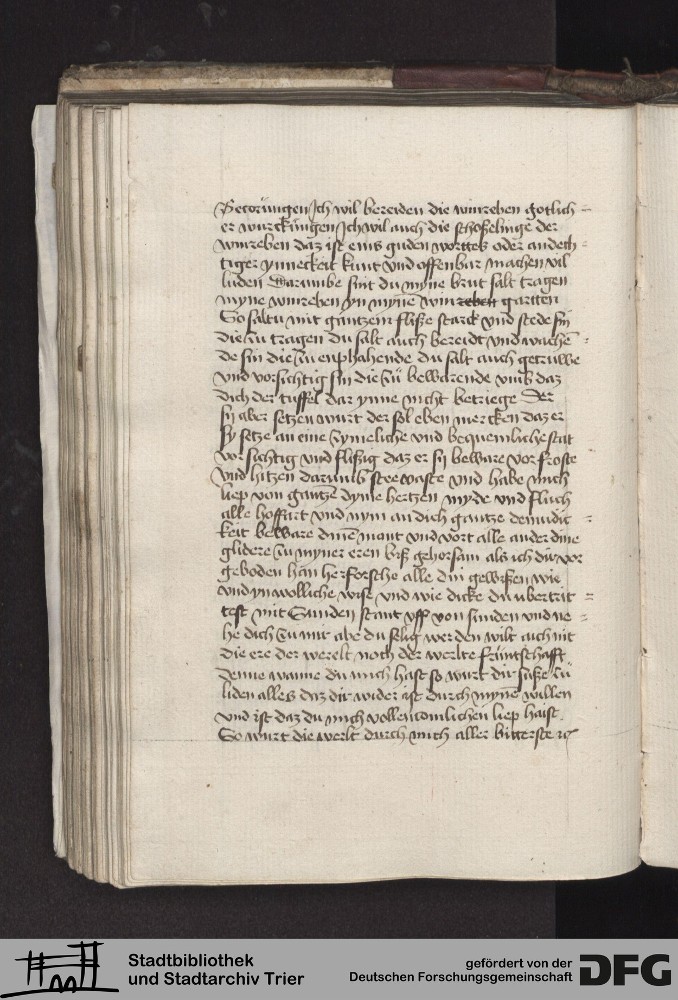 Becorũngen Jch wil bereiden die winreben gotlich-
er wurckũngen Jch wil auch die schoßelinge der
winreben daz ist eins guden worttes oder andech-
tiger ynneckeit kunt vnd offenbar machen vil
luden Darumbe sint du myne brut salt tragen
myne winreben yn myne winreben gartten
So saltu mit gantzem fliße starck vnd stede sin
die zu tragen du salt auch bereidt vnd wachen-
de sin die zu enphahende du salt auch getruwe
vnd vorsichtig sin die zü bewarende vmb daz
dich der tuffel dar ynne nicht betriege Der
sij aber setzen wirt der sol eben mercken daz er
sy setze an eine zymeliche vnd bequemliche stat
vorsichtig vnd flißig daz er sij beware vor froste
vnd hitzen darumb stee vaste vnd habe mich
liep von gantzē dyme hertzen myde vnd fluch
alle hoffart vnd nym an dich gantze demudic-
keit beware dinē mont vnd vort alle ander dine
glidere zu myner eren biß gehorsam als ich dir vor
geboden han her forsche alle din gewißen wie
vnd yn wolliche wise vnd wie dicke du ubertrit-
test mit Sunden stant vff von sunden vnd ne-
he dich zu mir abe du selig werden wilt acht nit
die ere der werelt noch der werlte früntschafft
Denne wanne du mich hast so wirt dir suße zü
liden alles daz dir wider ist durch myne willen
vnd ist daz du mich vollencomlichen liep haist.
So wirt die werlt durch mich aller bitterste ⁊c
Stadtbibliothek
und Stadtarchiv Trier
gefördert von der
Deutschen Forschungsgemeinschaft
DFG